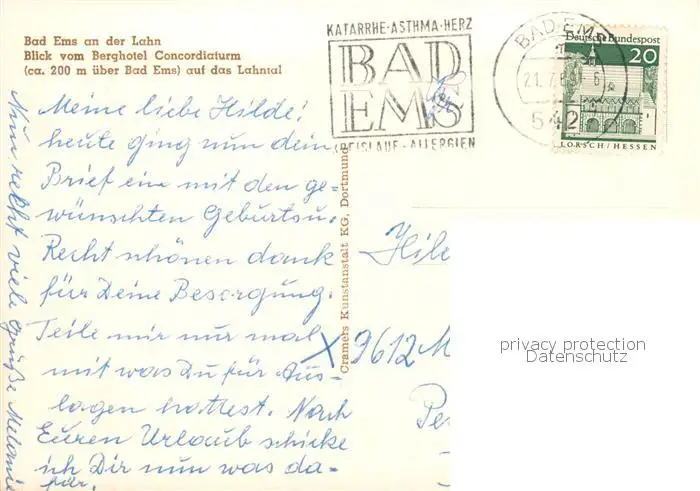 Bad Ems an der Lahn
Blick vom Berghotel Concordiaturm
(ca. 200 m über Bad Ems) auf das Lahntal
KATARRHE-ASTHMA-HERZ
BAD
EMS
KREISLAUF-ALLERGIEN
BAD EMS
21.7.69
542
Deutsche Bundespost
20
LORSCH/HESSEN
Meine liebe Hilde!
heute ging nun dein
Brief ein mit den ge-
wünschten Geburtsu.
Recht schönen dank
für Deine Besorgung.
Teile mir nur mal
mit was Du für Aus-
lagen hattest. Nach
Euren Urlaub schicke
ich Dir nun was da-
für.
Nun recht viele Grüße Melanie
Cramers Kunstanstalt KG, Dortmund
Hil
9612 M
Pe
privacy protection
Datenschutz